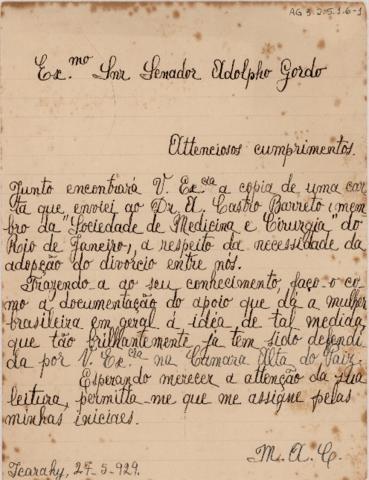 AG 5.2.5.1.6-1
Ex.mo Snr Senador Adolpho Gordo
Attenciosos cumprimentos.
Junto encontrará V. Excia a copia de uma car-
ta que enviei ao Dr. A. Castro Barreto, mem-
bro da "Sociedade de Medicina e Cirurgia" do
Rio de Janeiro, a respeito da necessidade da
adopção do divorcio entre nós.
Trazendo-a ao seu conhecimento, faço-o co-
mo a documentação do apoio que dá a mulher
brasileira em geral á idéa de tal medida,
que tão brilhantemente já tem sido defendi-
da por V. Excia na Camara Alta do Paiz.
Esperando merecer a attenção da sua
leitura, permitta-me que me assigne pelas
minhas iniciaes.
M. A. C.
Icarahy, 27-5-929.